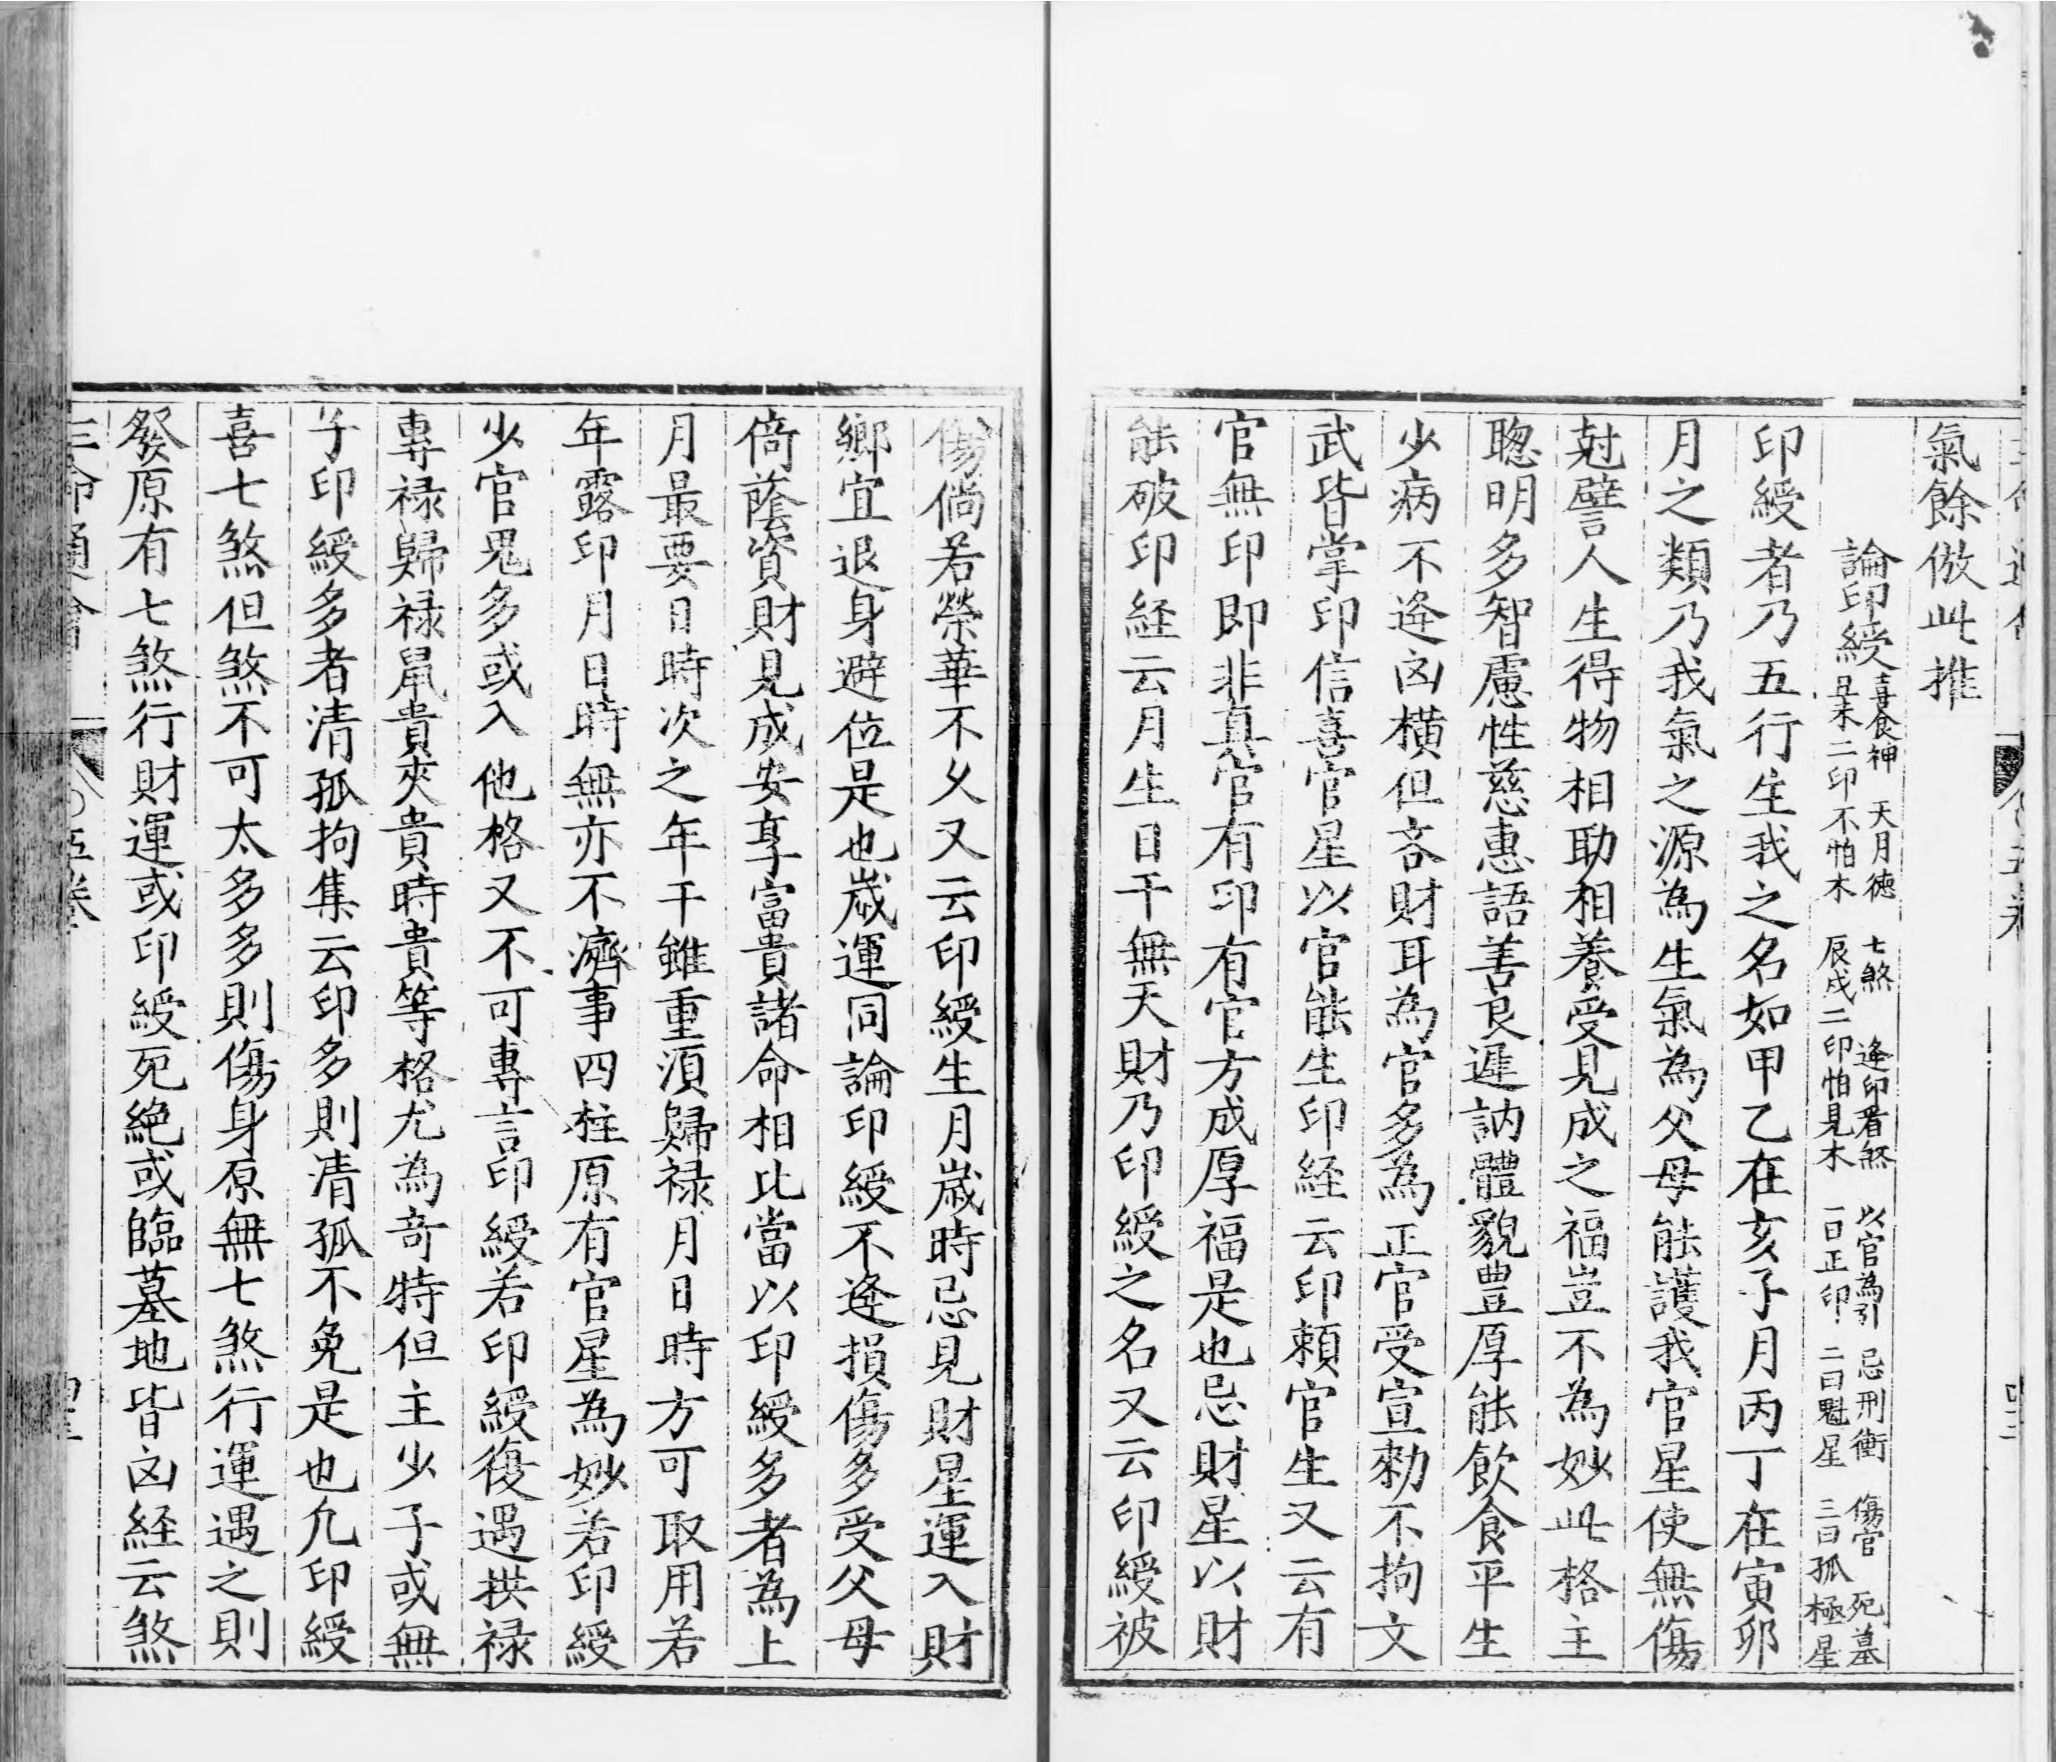 氣餘倣此推
論印綬喜食神 天月德 七煞 逢印看煞 以官為引 忌刑衝 傷官 死墓
丑未二印不怕木 辰戌二印怕見木 一曰正印 二曰魁星 三曰孤極星
印綬者乃五行生我之名如甲乙在亥子月丙丁在寅卯
月之類乃我氣之源為生氣為父母能護我官星使無傷
尅譬人生得物相助相養受見成之福豈不為妙此格主
聰明多智慮性慈惠語善良遲訥體貌豊厚能飲食平生
少病不逄凶橫但吝財耳為官多為正官受宣勑不拘文
武皆掌印信喜官星以官能生印経云印頼官生又云有
官無印即非真官有印有官方成厚福是也忌財星以財
能破印経云月生日干無天財乃印綬之名又云印綬被
傷倘若榮華不乆又云印綬生月嵗時忌見財星運入財
鄉宜退身避位是也嵗運同論印綬不逄損傷多受父母
倚蔭資財見成安享富貴諸命相比當以印綬多者為上
月最要日時次之年干雖重湏歸禄月日時方可取用若
年露印月日時無亦不濟事四柱原有官星為妙若印綬
少官鬼多或入他格又不可專言印綬若印綬復遇拱禄
專禄歸禄鼠貴夾貴時貴等格尤為奇特但主少子或無
子印綬多者清孤拘集云印多則清孤不免是也凢印綬
喜七煞但煞不可太多多則傷身原無七煞行運遇之則
發原有七煞行財運或印綬死絶或臨墓地皆凶経云煞
三命通會 五卷